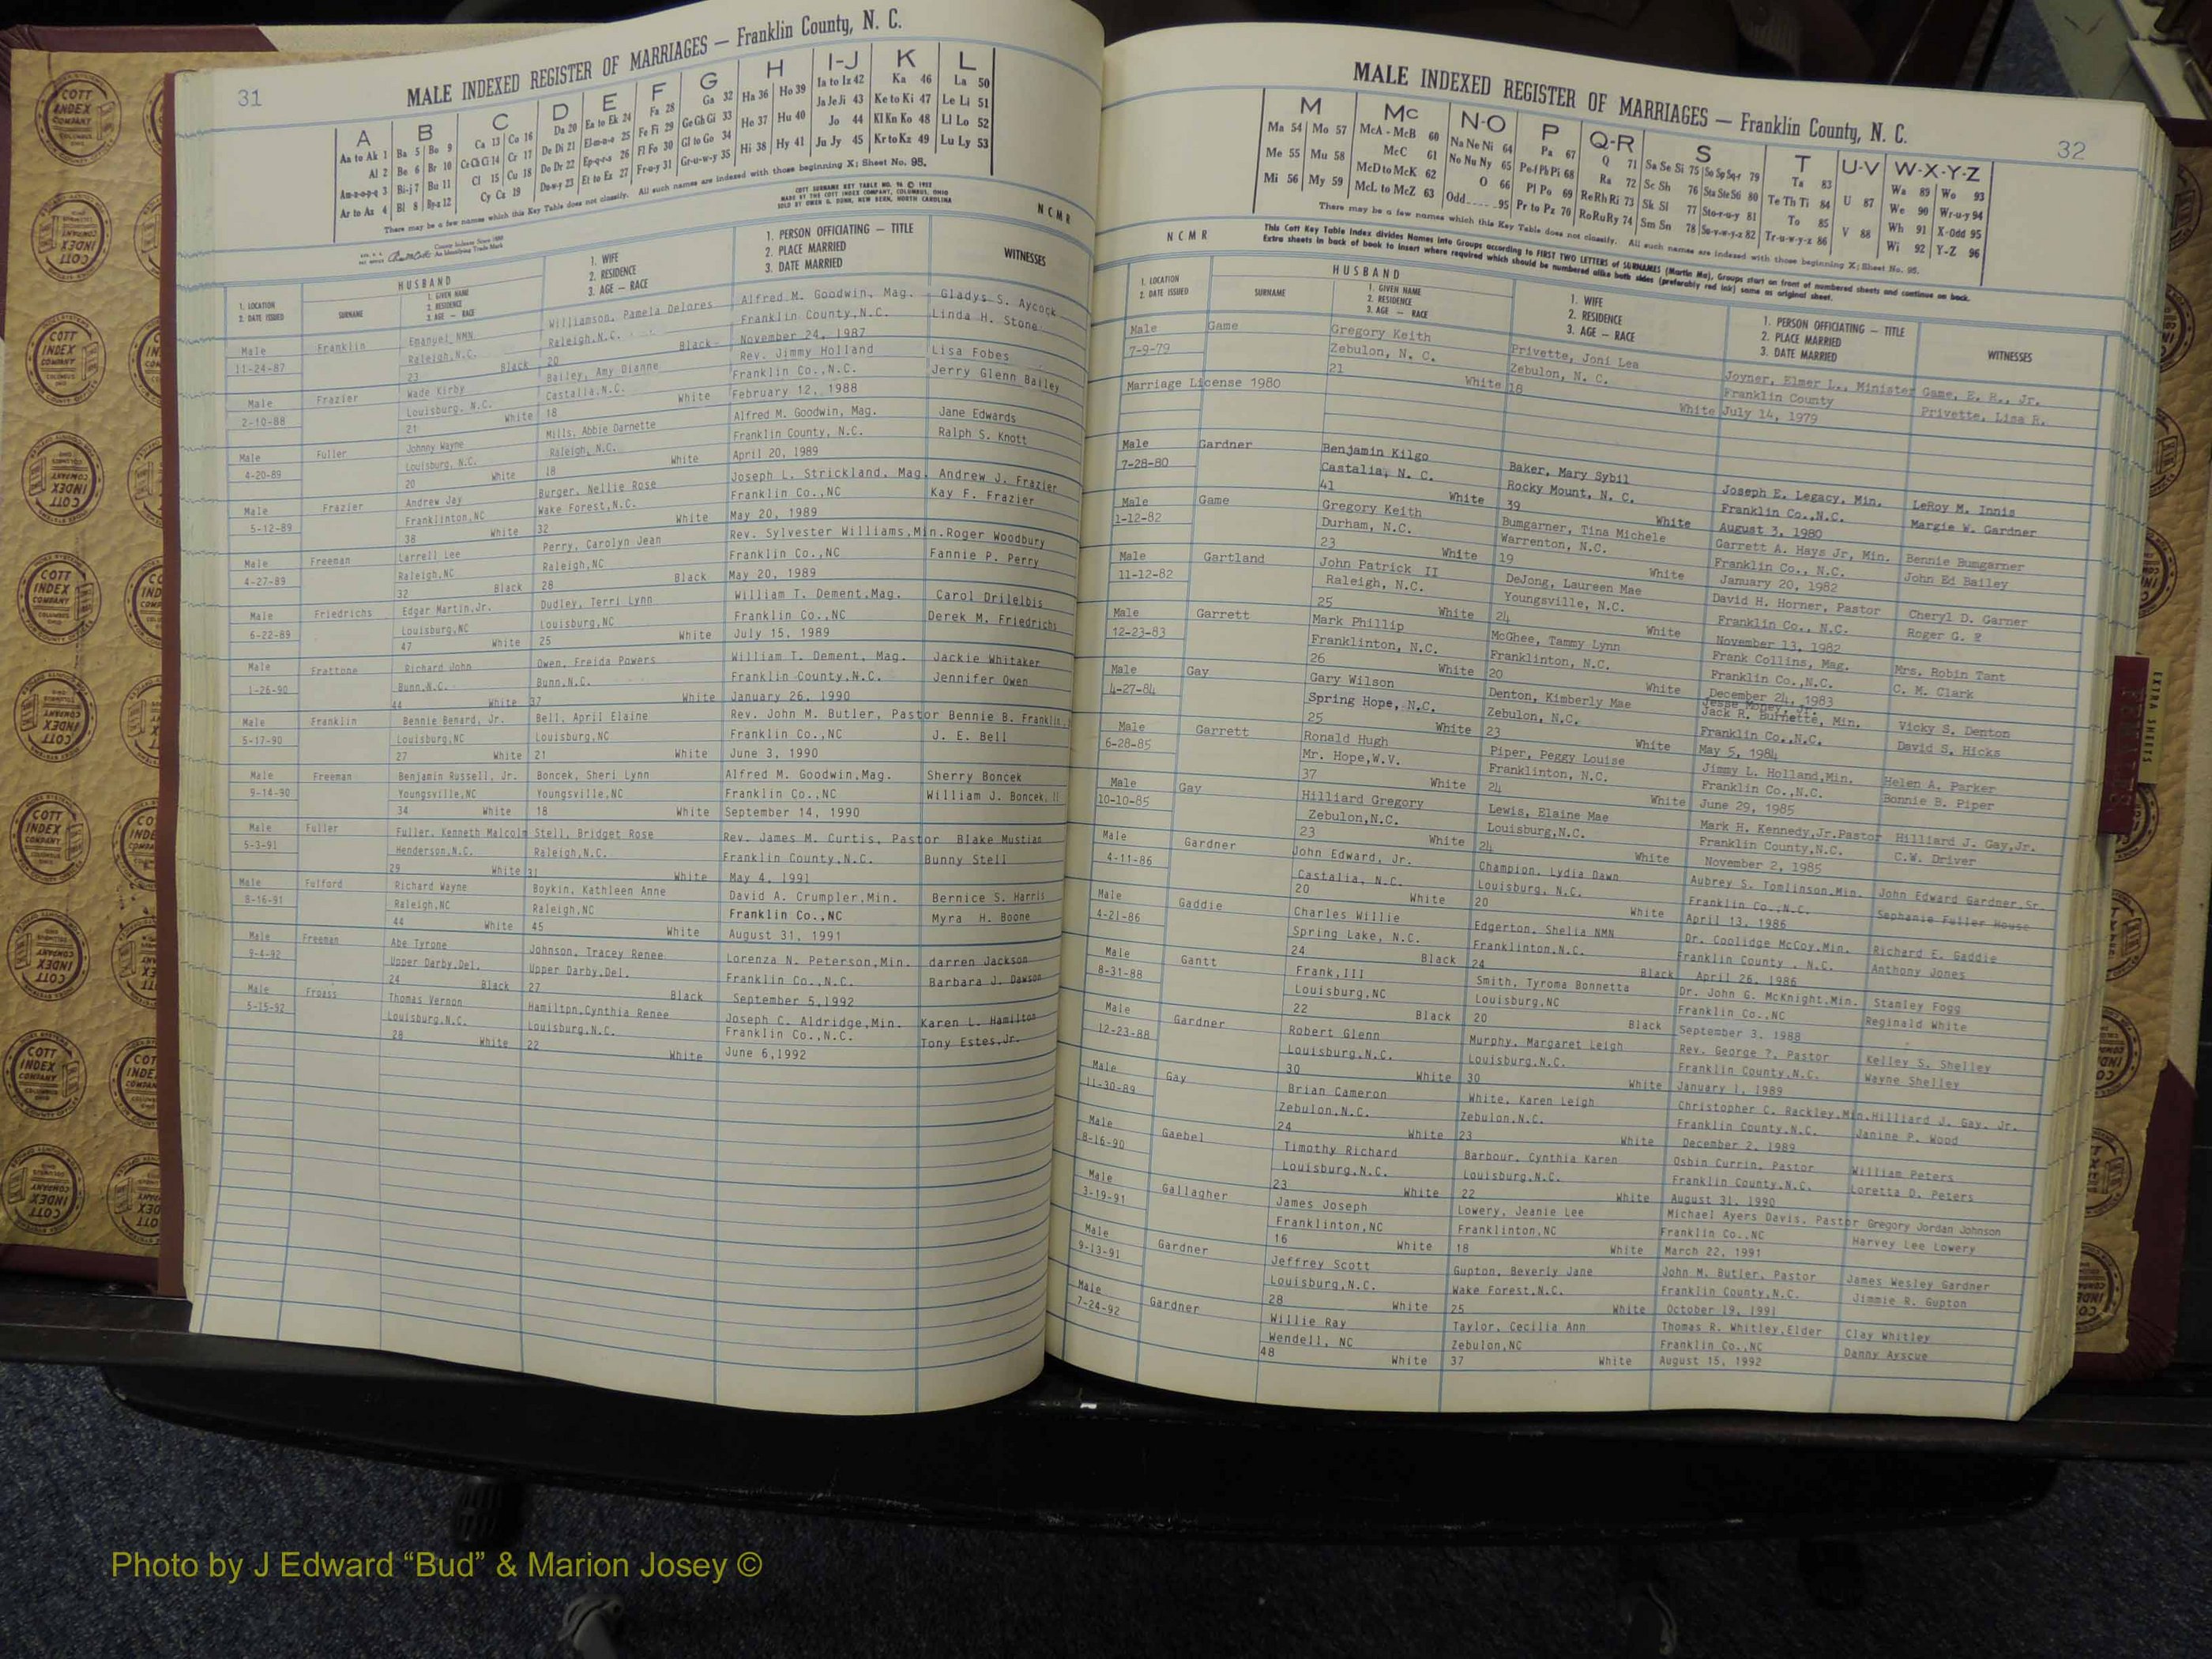 31
MALE INDEXED REGISTER OF MARRIAGES — Franklin County, N. C.
A B C D E F G H I-J K L
Aa to Ak 1 Ba 5 Bo 9 Ca 13 Co 16 Da 20 Ea to Ek 24 Fa 28 Ga 32 Ha 36 Ho 39 Ia to Iz 42 Ka 46 La 50
Al 2 Be 6 Br 10 Ce Ch Ci 14 Cr 17 De Di 21 El-m-n-o 25 Fe Fi 29 Ge Gh Gi 33 He 37 Hu 40 Ja Je Ji 43 Ke to Ki 47 Le Li 51
Am-n-o-p-q 3 Bi-j 7 Bu 11 Cl 15 Cu 18 Do Dr 22 Ep-q-r-s 26 Fl Fo 30 Gl to Go 34 Hi 38 Hy 41 Jo 44 Kl Kn Ko 48 Ll Lo 52
Ar to Az 4 Bl 8 By-z 12 Cy Cz 19 Du-w-y 23 Et to Ez 27 Fr-u-y 31 Gr-u-w-y 35 Ju Jy 45 Kr to Kz 49 Lu Ly 53
There may be a few names which this Key Table does not classify. All such names are indexed with those beginning X; Sheet No. 95.
COTT SURNAME KEY TABLE NO. 96 © 1952
MADE BY THE COTT INDEX COMPANY, COLUMBUS, OHIO
SOLD BY OWEN G. DUNN, NEW BERN, NORTH CAROLINA
N C M R
1. LOCATION
2. DATE ISSUED
HUSBAND
SURNAME
1. GIVEN NAME
2. RESIDENCE
3. AGE — RACE
1. WIFE
2. RESIDENCE
3. AGE — RACE
1. PERSON OFFICIATING — TITLE
2. PLACE MARRIED
3. DATE MARRIED
WITNESSES
Male Franklin Emanuel NMN Williamson, Pamela Delores Alfred M. Goodwin, Mag. Gladys S. Aycock
11-24-87 Raleigh,N.C. Raleigh,N.C. Franklin County,N.C. Linda H. Stone
23 Black 20 Black November 24, 1987
Male Frazier Wade Kirby Bailey, Amy Dianne Rev. Jimmy Holland Lisa Fobes
2-10-88 Louisburg, N.C. Castalia,N.C. Franklin Co.,N.C. Jerry Glenn Bailey
21 White 18 White February 12, 1988
Male Fuller Johnny Wayne Mills, Abbie Darnette Alfred M. Goodwin, Mag. Jane Edwards
4-20-89 Louisburg, N.C. Raleigh, N.C. Franklin County, N.C. Ralph S. Knott
20 White 18 White April 20, 1989
Male Frazier Andrew Jay Burger, Nellie Rose Joseph L. Strickland, Mag. Andrew J. Frazier
5-12-89 Franklinton,NC Wake Forest,N.C. Franklin Co.,NC Kay F. Frazier
38 White 32 White May 20, 1989
Male Freeman Larrell Lee Perry, Carolyn Jean Rev. Sylvester Williams,Min. Roger Woodbury
4-27-89 Raleigh,NC Raleigh,NC Franklin Co.,NC Fannie P. Perry
32 Black 28 Black May 20, 1989
Male Friedrichs Edgar Martin,Jr. Dudley, Terri Lynn William T. Dement,Mag. Carol Drilelbis
6-22-89 Louisburg,NC Louisburg,NC Franklin Co.,NC Derek M. Friedrichs
47 White 25 White July 15, 1989
Male Frattone Richard John Owen, Freida Powers William T. Dement, Mag. Jackie Whitaker
1-26-90 Bunn,N.C. Bunn,N.C. Franklin County,N.C. Jennifer Owen
44 White 37 White January 26, 1990
Male Franklin Bennie Benard, Jr. Bell, April Elaine Rev. John M. Butler, Pastor Bennie B. Franklin,
5-17-90 Louisburg,NC Louisburg,NC Franklin Co.,NC J. E. Bell
27 White 21 White June 3, 1990
Male Freeman Benjamin Russell, Jr. Boncek, Sheri Lynn Alfred M. Goodwin,Mag. Sherry Boncek
9-14-90 Youngsville,NC Youngsville,NC Franklin Co.,NC William J. Boncek, II
34 White 18 White September 14, 1990
Male Fuller Fuller, Kenneth Malcolm Stell, Bridget Rose Rev. James M. Curtis, Pastor Blake Mustian
5-3-91 Henderson,N.C. Raleigh,N.C. Franklin County,N.C. Bunny Stell
29 White 31 White May 4, 1991
Male Fulford Richard Wayne Boykin, Kathleen Anne David A. Crumpler,Min. Bernice S. Harris
8-16-91 Raleigh,NC Raleigh,NC Franklin Co.,NC Myra H. Boone
44 White 45 White August 31, 1991
Male Freeman Abe Tyrone Johnson, Tracey Renee Lorenza N. Peterson,Min. darren Jackson
9-4-92 Upper Darby,Del. Upper Darby,Del. Franklin Co.,N.C. Barbara J. Dawson
24 Black 27 Black September 5,1992
Male Froass Thomas Vernon Hamilton,Cynthia Renee Joseph C. Aldridge,Min. Karen L. Hamilton
5-15-92 Louisburg,N.C. Louisburg,N.C. Franklin Co.,N.C. Tony Estes,Jr.
28 White 22 White June 6,1992
32
MALE INDEXED REGISTER OF MARRIAGES — Franklin County, N. C.
M Mc N-O P Q-R S T U-V W-X-Y-Z
Ma 54 Mo 57 McA - McB 60 Na Ne Ni 64 Pa 67 Q 71 Sa Se Si 75 So Sp Sq-r 79 Ta 83 Wa 89 Wo 93
Me 55 Mu 58 McC 61 No Nu Ny 65 Pe-f Ph Pi 68 Ra 72 Sc Sh 76 Sta Ste S6 80 Te Th Ti 84 U 87 We 90 Wr-u-y 94
Mi 56 My 59 McD to McK 62 O 66 Pl Po 69 Re Rh Ri 73 Sk Sl 77 Sto-r-u-y 81 To 85 Wh 91 X-Odd 95
McL to McZ 63 Odd 95 Pr to Pz 70 Ro Ru Ry 74 Sm Sn 78 Su-v-w-y-z 82 Tr-u-w-y-z 86 V 88 Wi 92 Y-Z 96
There may be a few names which this Key Table does not classify. All such names are indexed with those beginning X; Sheet No. 95.
N C M R
This Cott Key Table Index divides Names into Groups according to FIRST TWO LETTERS of SURNAMES (Martin Ma), Groups start on front of numbered sheets and continue on back.
Extra sheets in back of book to insert where required which should be numbered alike both sides (preferably red ink) same as original sheet.
1. LOCATION
2. DATE ISSUED
HUSBAND
SURNAME
1. GIVEN NAME
2. RESIDENCE
3. AGE — RACE
1. WIFE
2. RESIDENCE
3. AGE — RACE
1. PERSON OFFICIATING — TITLE
2. PLACE MARRIED
3. DATE MARRIED
WITNESSES
Male Game Gregory Keith Privette, Joni Lea Joyner, Elmer L., Minister Game, E. R., Jr.
7-9-79 Zebulon, N. C. Zebulon, N. C. Franklin County Privette, Lisa R.
21 White 18 White July 14, 1979
Marriage License 1980
Male Gardner Benjamin Kilgo Baker, Mary Sybil Joseph E. Legacy, Min. LeRoy M. Innis
7-28-80 Castalia, N. C. Rocky Mount, N. C. Franklin Co.,N.C. Margie W. Gardner
41 White 39 White August 3, 1980
Male Game Gregory Keith Bumgarner, Tina Michele Garrett A. Hays Jr, Min. Bennie Bumgarner
1-12-82 Durham, N.C. Warrenton, N.C. Franklin Co., N.C. John Ed Bailey
23 White 19 White January 20, 1982
Male Gartland John Patrick II DeJong, Laureen Mae David H. Horner, Pastor Cheryl D. Garner
11-12-82 Raleigh, N.C. Youngsville, N.C. Franklin Co., N.C. Roger G. ?
25 White 24 White November 13, 1982
Male Garrett Mark Phillip McGhee, Tammy Lynn Frank Collins, Mag. Mrs. Robin Tant
12-23-83 Franklinton, N.C. Franklinton, N.C. Franklin Co.,N.C. C. M. Clark
26 White 20 White December 24, 1983
Jesse Money, Jr.
Male Gay Gary Wilson Denton, Kimberly Mae Jack R. Burnette, Min. Vicky S. Denton
4-27-84 Spring Hope, N.C. Zebulon, N.C. Franklin Co.,N.C. David S. Hicks
25 White 23 White May 5, 1984
Male Garrett Ronald Hugh Piper, Peggy Louise Jimmy L. Holland,Min. Helen A. Parker
6-28-85 Mr. Hope,W.V. Franklinton, N.C. Franklin Co.,N.C. Bonnie B. Piper
37 White 24 White June 29, 1985
Male Gay Hilliard Gregory Lewis, Elaine Mae Mark H. Kennedy,Jr.Pastor Hilliard J. Gay,Jr.
10-10-85 Zebulon,N.C. Louisburg,N.C. Franklin County,N.C. C.W. Driver
23 White 24 White November 2, 1985
Male Gardner John Edward, Jr. Champion, Lydia Dawn Aubrey S. Tomlinson,Min. John Edward Gardner,Sr.
4-11-86 Castalia, N.C. Louisburg, N.C. Franklin Co.,N.C. Sephanie Fuller House
20 White 20 White April 13, 1986
Male Gaddie Charles Willie Edgerton, Shelia NMN Dr. Coolidge McCoy,Min. Richard E. Gaddie
4-21-86 Spring Lake, N.C. Franklinton,N.C. Franklin County , N.C. Anthony Jones
24 Black 24 Black April 26, 1986
Male Gantt Frank,III Smith, Tyroma Bonnetta Dr. John G. McKnight,Min. Stanley Fogg
8-31-88 Louisburg,NC Louisburg,NC Franklin Co.,NC Reginald White
22 Black 20 Black September 3, 1988
Male Gardner Robert Glenn Murphy, Margaret Leigh Rev. George ?, Pastor Kelley S. Shelley
12-23-88 Louisburg,N.C. Louisburg,N.C. Franklin County,N.C. Wayne Shelley
30 White 30 White January 1, 1989
Male Gay Brian Cameron White, Karen Leigh Christopher C. Rackley,Min. Hilliard J. Gay, Jr.
11-30-89 Zebulon,N.C. Zebulon,N.C. Franklin County,N.C. Janine P. Wood
24 White 23 White December 2, 1989
Male Gaebel Timothy Richard Barbour, Cynthia Karen Osbin Currin, Pastor William Peters
8-16-90 Louisburg,N.C. Louisburg,N.C. Franklin County,N.C. Loretta D. Peters
23 White 22 White August 31, 1990
Male Gallagher James Joseph Lowery, Jeanie Lee Michael Ayers Davis, Pastor Gregory Jordan Johnson
3-19-91 Franklinton,NC Franklinton,NC Franklin Co.,NC Harvey Lee Lowery
16 White 18 White March 22, 1991
Male Gardner Jeffrey Scott Gupton, Beverly Jane John M. Butler, Pastor James Wesley Gardner
9-13-91 Louisburg,N.C. Wake Forest,N.C. Franklin County,N.C. Jimmie R. Gupton
28 White 25 White October 19, 1991
Male Gardner Willie Ray Taylor, Cecilia Ann Thomas R. Whitley,Elder Clay Whitley
7-24-92 Wendell, NC Zebulon,NC Franklin Co.,NC Danny Ayscue
48 White 37 White August 15, 1992
EXTRA SHEETS
COTT INDEX COMPANY
Photo by J Edward “Bud” & Marion Josey ©